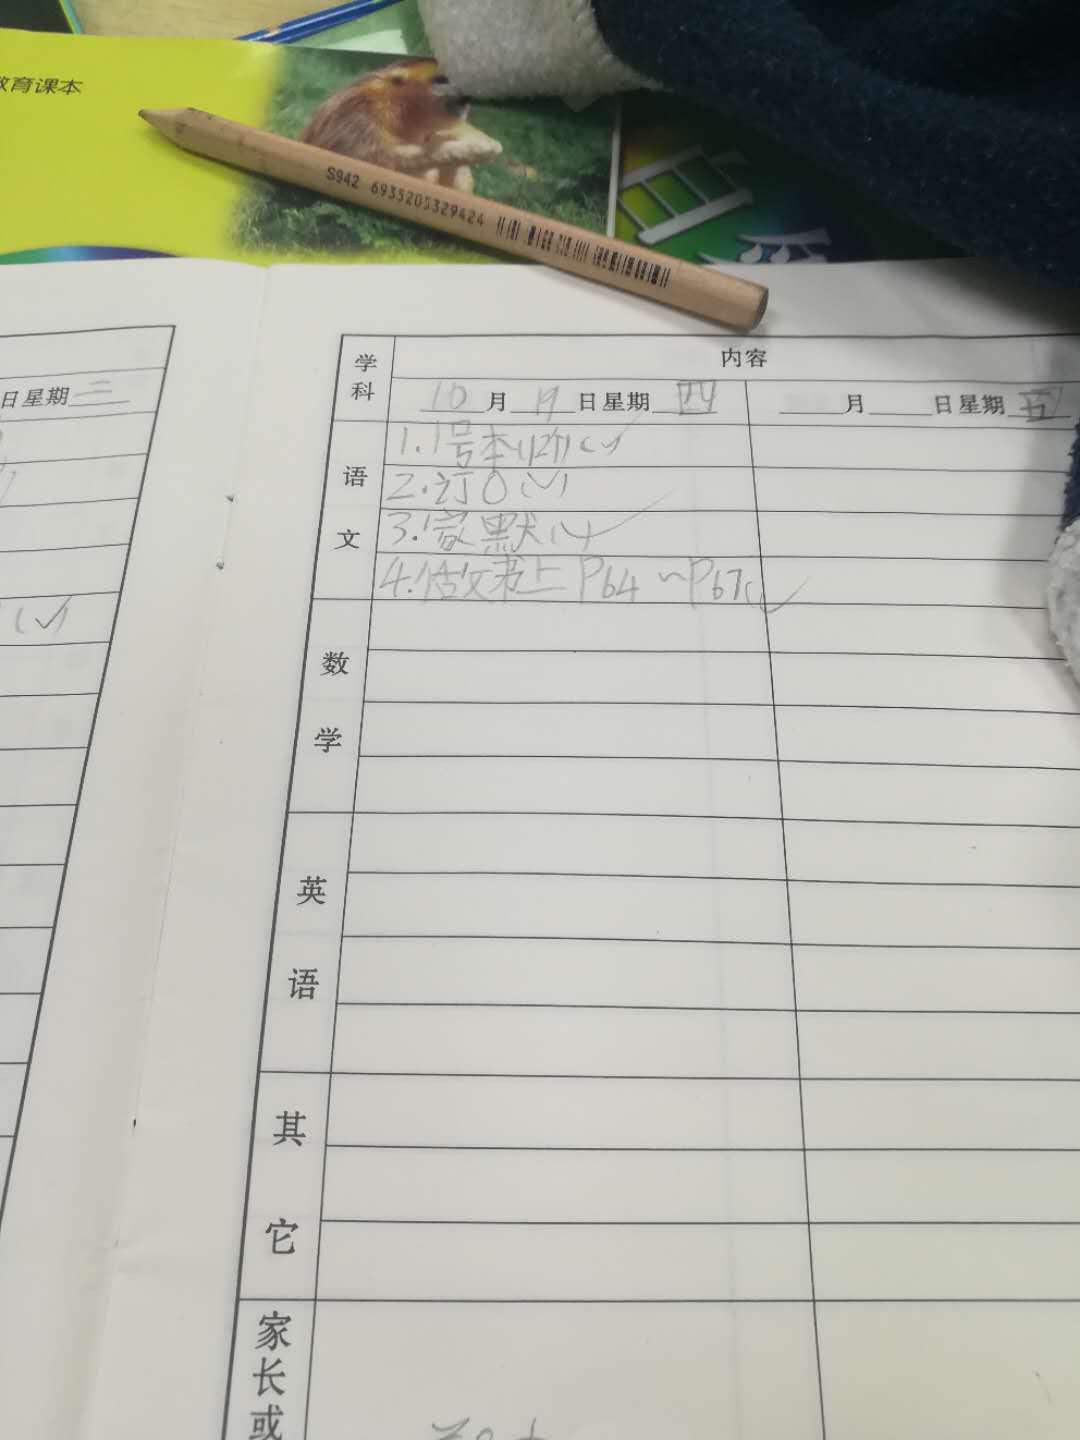 教育课本
S942 6935205329424
日星期三
(√)
学科
内容
10月19日星期四
月 日星期五
语文
1.1号本(12行)(√)
2.订0(√)
3.家默(√)
4. 书上P64~P67(√)
数学
英语
其它
家长或